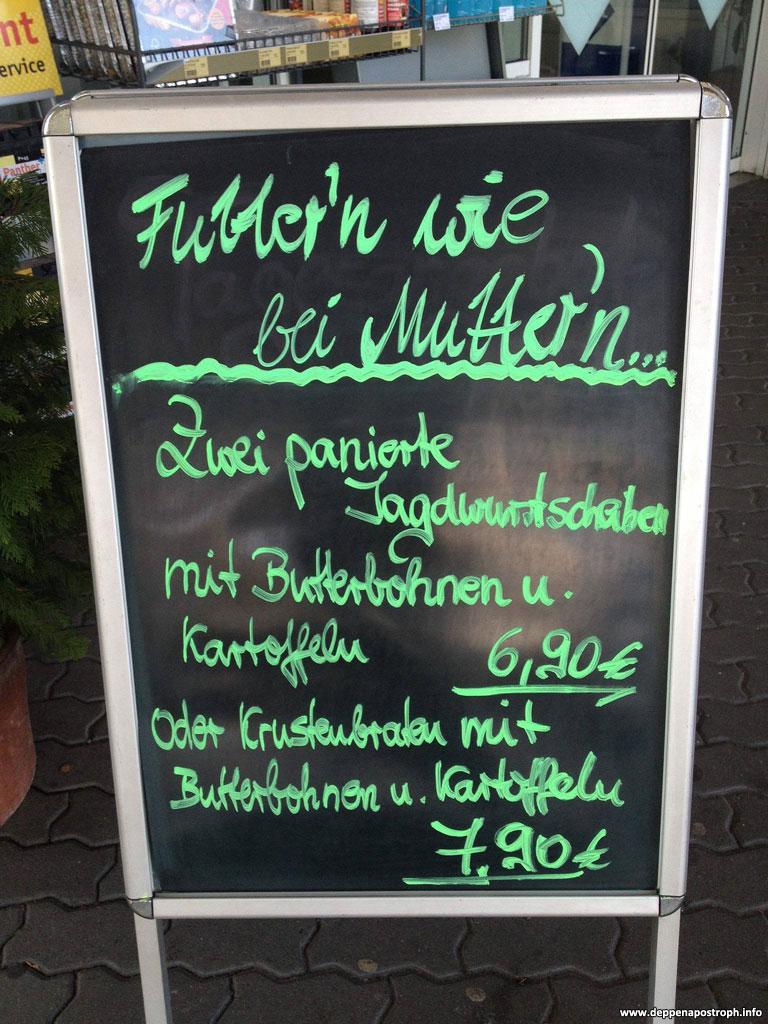 nt
ervice
Panther
Futter'n wie
bei Mutter'n...
Zwei panierte
Jagdwurtschaben
mit Butterbohnen u.
Kartoffeln
6,90€
Oder Krustenbraten mit
Butterbohnen u. Kartoffeln
7,90€
www.deppenapostroph.info